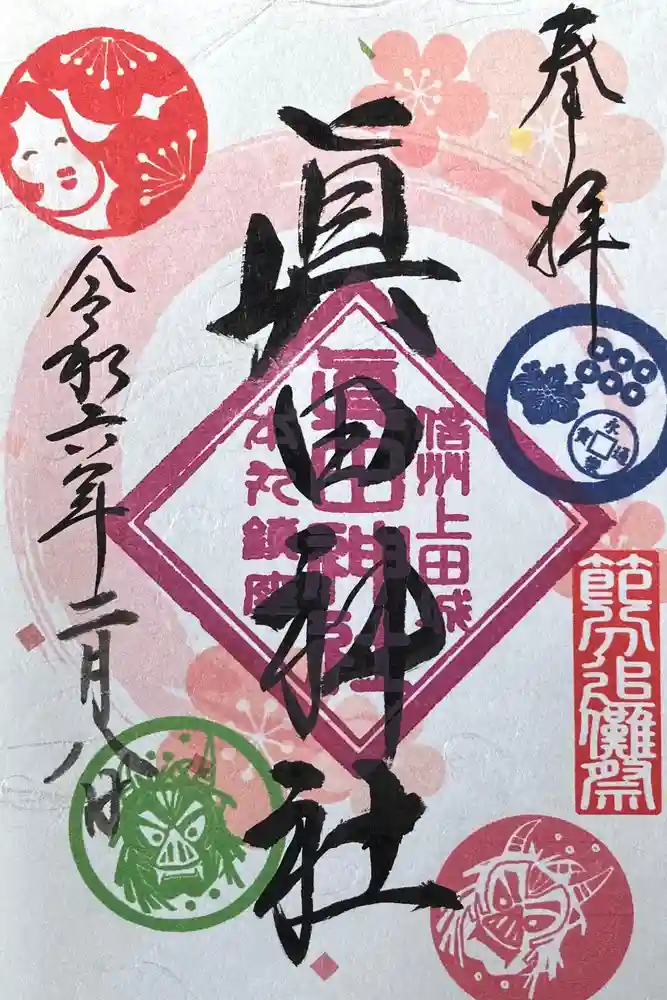 奉拝
眞田神社
信州上田城
眞田神社
本丸鎮座
永樂通寳
節分追儺祭
令和六年二月八日